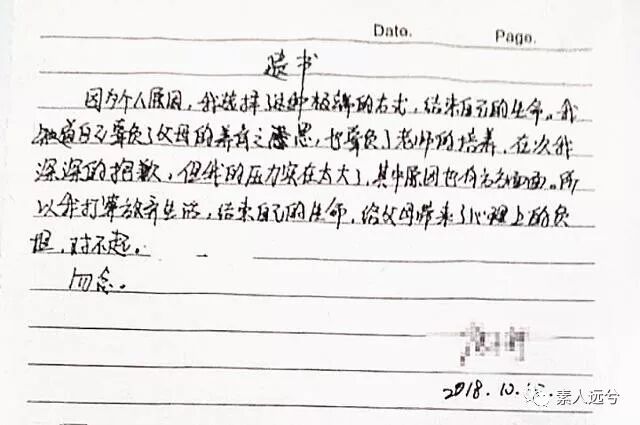 Date.
Page.
遗书
因为个人原因,我选择了这种极端的方式,结束自己的生命。我
知道自己辜负了父母的养育之恩,也辜负了老师的培养,在次我
深深的抱歉,但我的压力实在太大了,其中原因也有方方面面。所
以我打算放弃生活,结束自己的生命,给父母带来了心理上的负
担,对不起。
勿念。
2018.10.
素人远兮